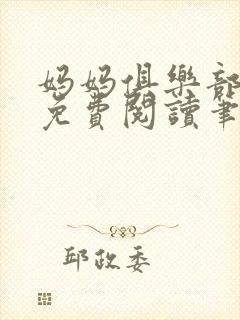 妈妈俱樂部
免費閱讀筆
邱政委